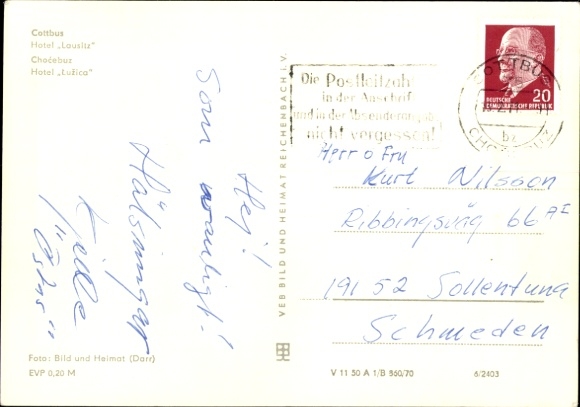 Cottbus
Hotel „Lausitz"
Choćebuz
Hotel „Łužica"
Hej!
Som vanligt!
Hälsningar
Kjelle
"Ösku"
Foto: Bild und Heimat (Darr)
EVP 0,20 M
VEB BILD UND HEIMAT REICHENBACH I.V.
Die Postleitzahl
in der Anschrift
und in der Absenderangabe
nicht vergessen!
COTTBUS
DEUTSCHE
DEMOKRATISCHE REPUBLIK
20
Herr o Fru
Kurt Nilsson
Ribbingsväg 66 AI
191 52 Sollentuna
Schweden
V 11 50 A 1/B 560/70
6/2403